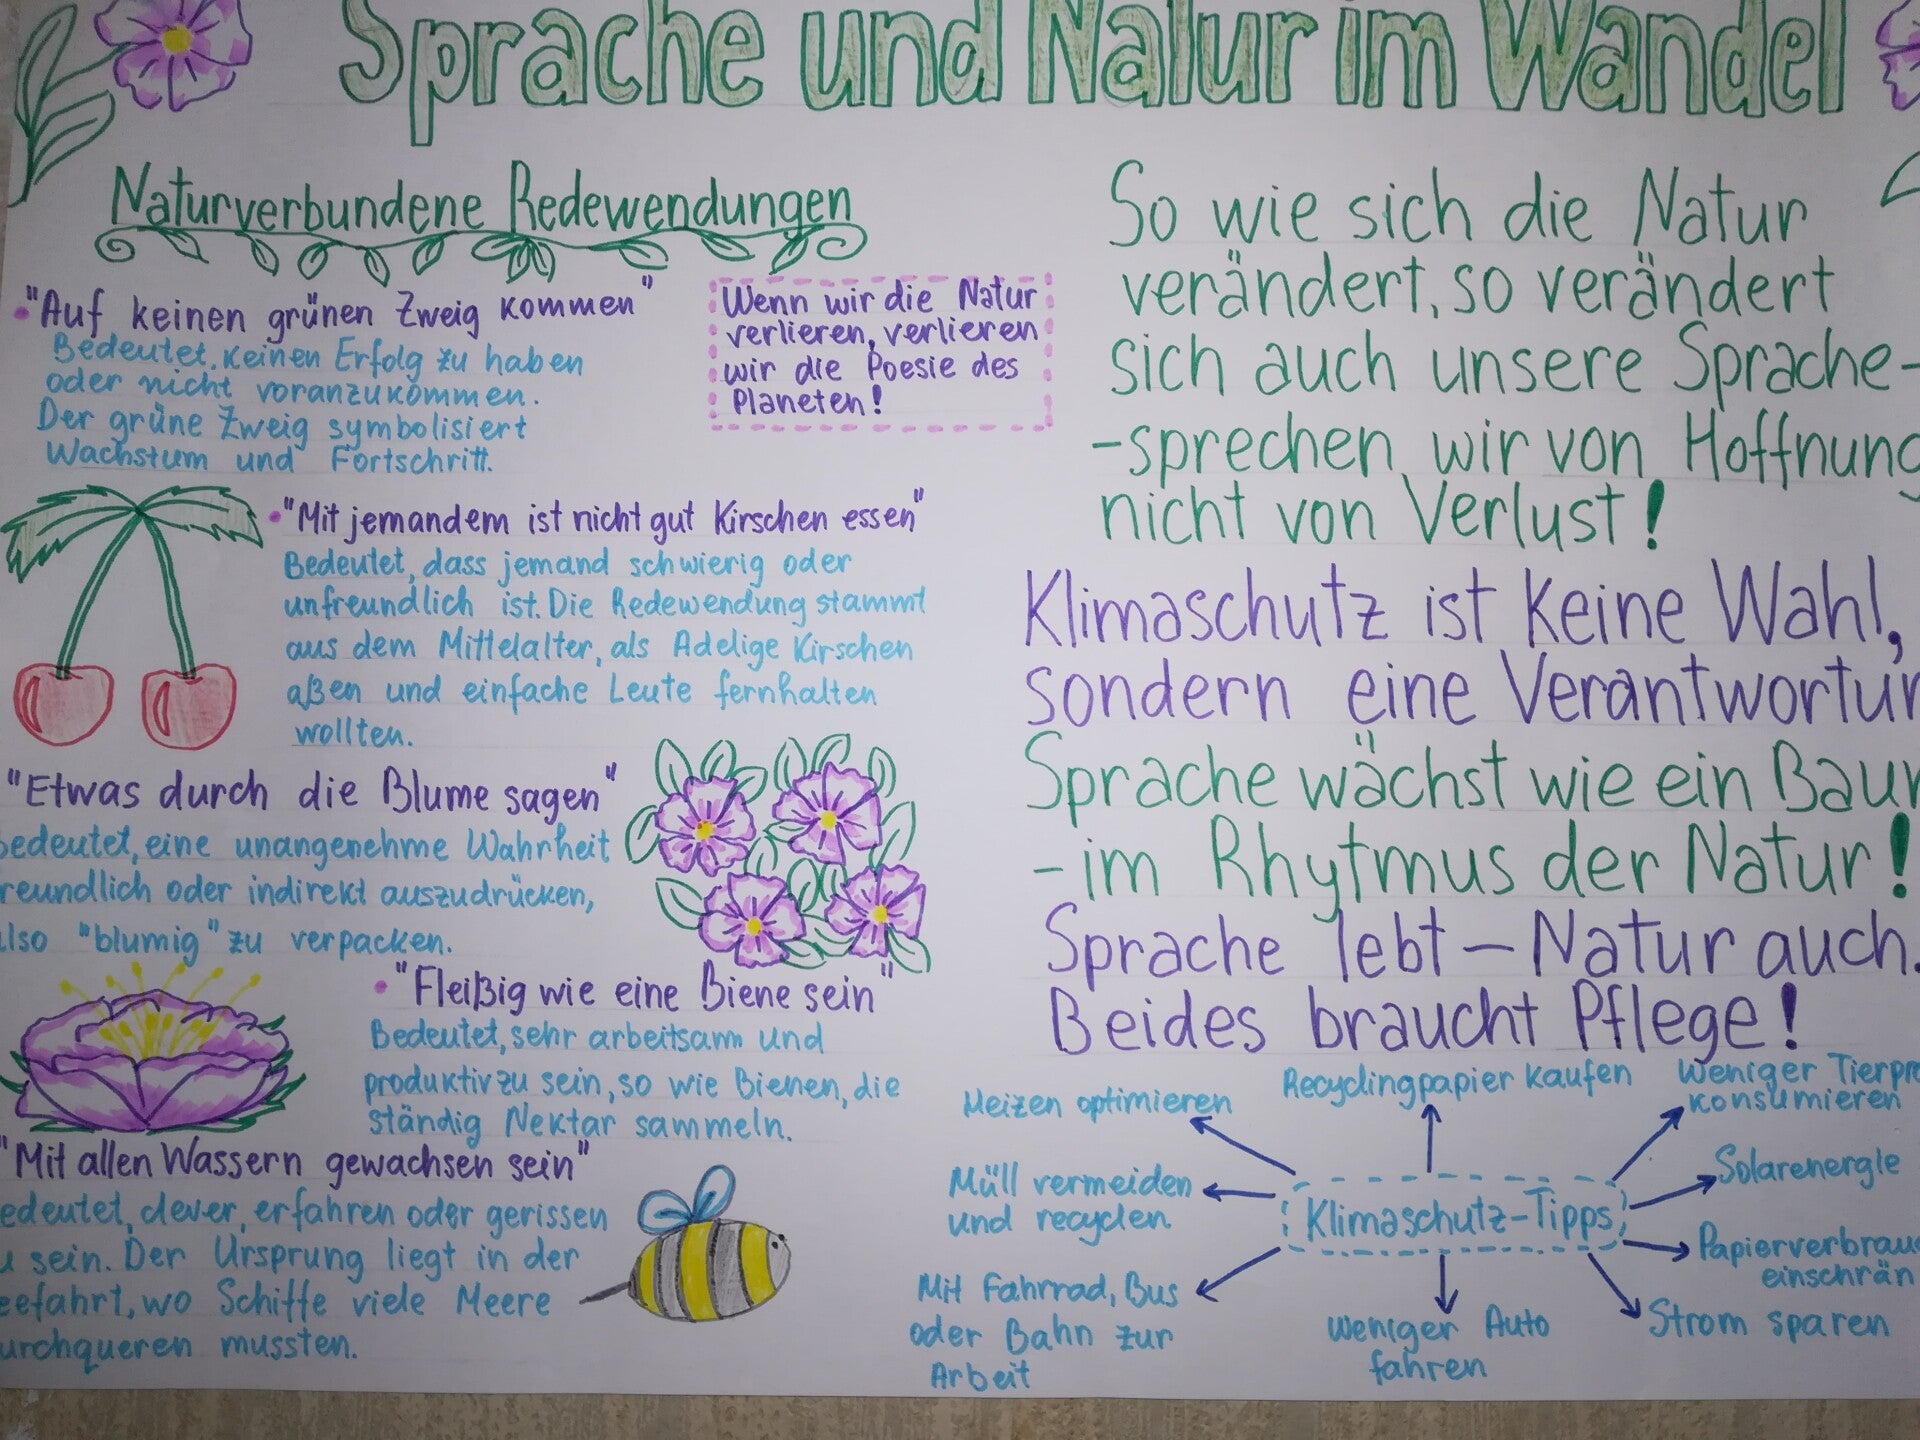 Sprache und Natur im Wandel
Naturverbundene Redewendungen
"Auf keinen grünen Zweig kommen"
Bedeutet, keinen Erfolg zu haben
oder nicht voranzukommen.
Der grüne Zweig symbolisiert
Wachstum und Fortschritt.
Wenn wir die Natur
verlieren, verlieren
wir die Poesie des
Planeten!
"Mit jemandem ist nicht gut Kirschen essen"
Bedeutet, dass jemand schwierig oder
unfreundlich ist. Die Redewendung stammt
aus dem Mittelalter, als Adelige Kirschen
aßen und einfache Leute fernhalten
wollten.
"Etwas durch die Blume sagen"
bedeutet, eine unangenehme Wahrheit
reundlich oder indirekt auszudrücken,
lso "blumig" zu verpacken.
"Fleißig wie eine Biene sein"
Bedeutet, sehr arbeitsam und
produktiv zu sein, so wie Bienen, die
ständig Nektar sammeln.
"Mit allen Wassern gewachsen sein"
edeutet, clever, erfahren oder gerissen
u sein. Der Ursprung liegt in der
eefahrt, wo Schiffe viele Meere
urchqueren mussten.
So wie sich die Natur
verändert, so verändert
sich auch unsere Sprache-
-sprechen wir von Hoffnung
nicht von Verlust!
Klimaschutz ist keine Wahl,
sondern eine Verantwortun
Sprache wächst wie ein Baum
-im Rhytmus der Natur!
Sprache lebt - Natur auch.
Beides braucht Pflege!
Heizen optimieren
Recyclingpapier kaufen
Weniger Tierpro
konsumieren
Müll vermeiden
und recyclen
Klimaschutz-Tipps
Solarenergie
Papierverbrauc
einschrän
Mit Fahrrad, Bus
oder Bahn zur
Arbeit
weniger Auto
fahren
Strom sparen